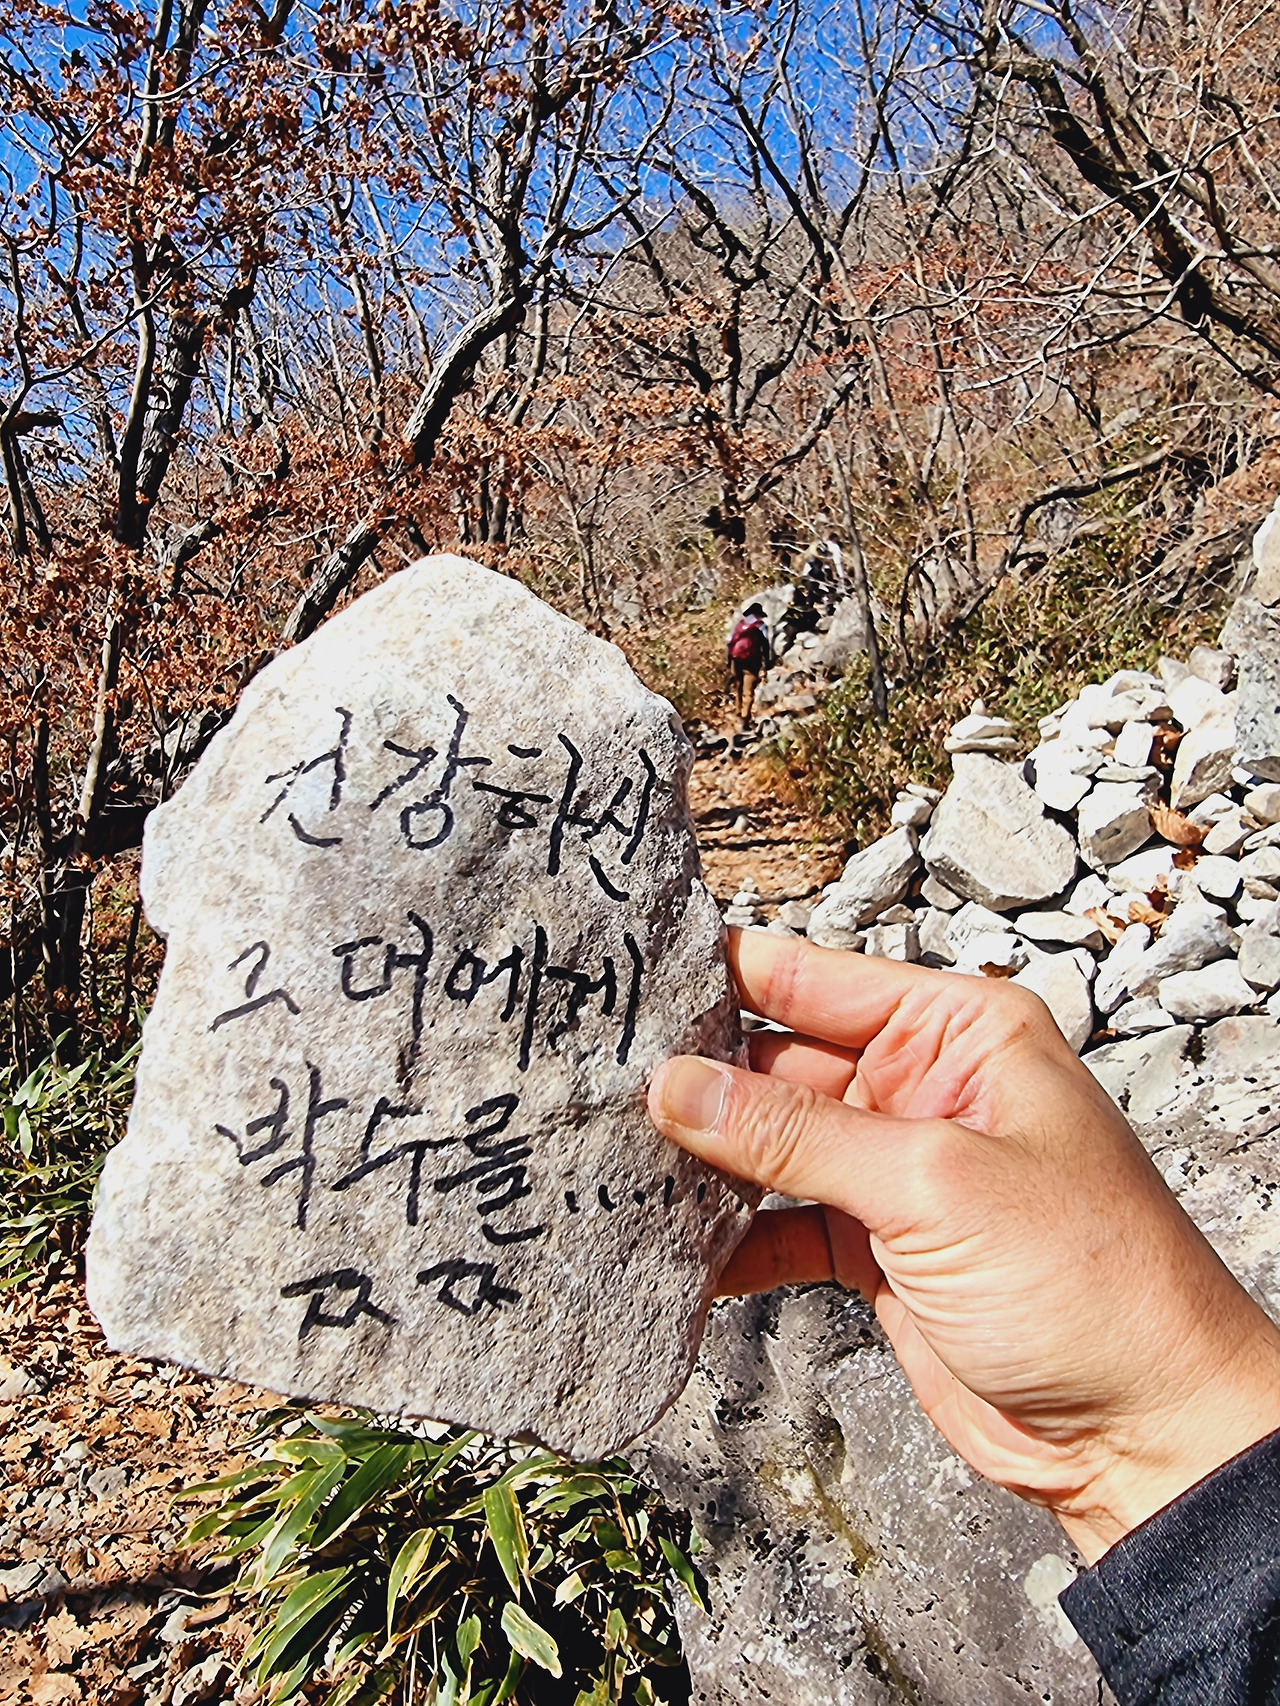 건강하신
그대에게
박수를......
짝 짝